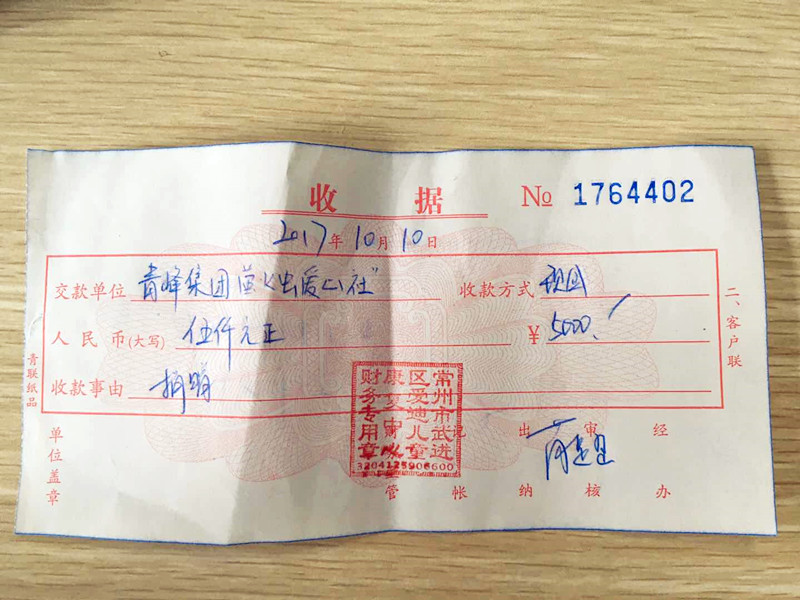 收 据 № 1764402
2017年10月10日
交款单位 青峰集团萤火虫爱心社" 收款方式 现金
人民币(大写) 伍仟元正 ¥ 5000.
收款事由 捐赠
二、客户联
青联纸品
单位盖章
常州市武进
区爱迪儿童
康复
财务专用章
3204125906600
记 出 审 经
管 帐 纳 核 办